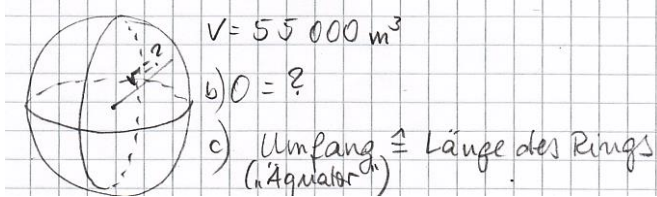 V = 55 000 m³
r = ?
b) O = ?
c) Umfang ≙ Länge des Rings
("Äquator")